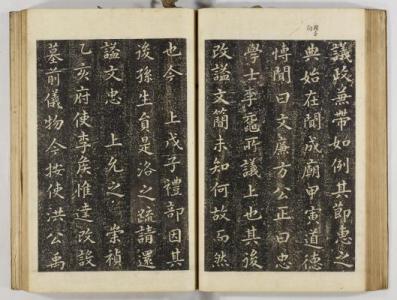 議政兼帶如例其節惠之
典始在間成廟甲寅道德
博聞曰文廉方公正曰忠
學士李黿所議上也其後
改謚文簡未知何故而然
也今 上戊子禮部因其
後孫生員是洛之疏請還
謚文忠 上允之 崇禎
乙亥府使李矦惟達改設
墓前儀物今按使洪公禹